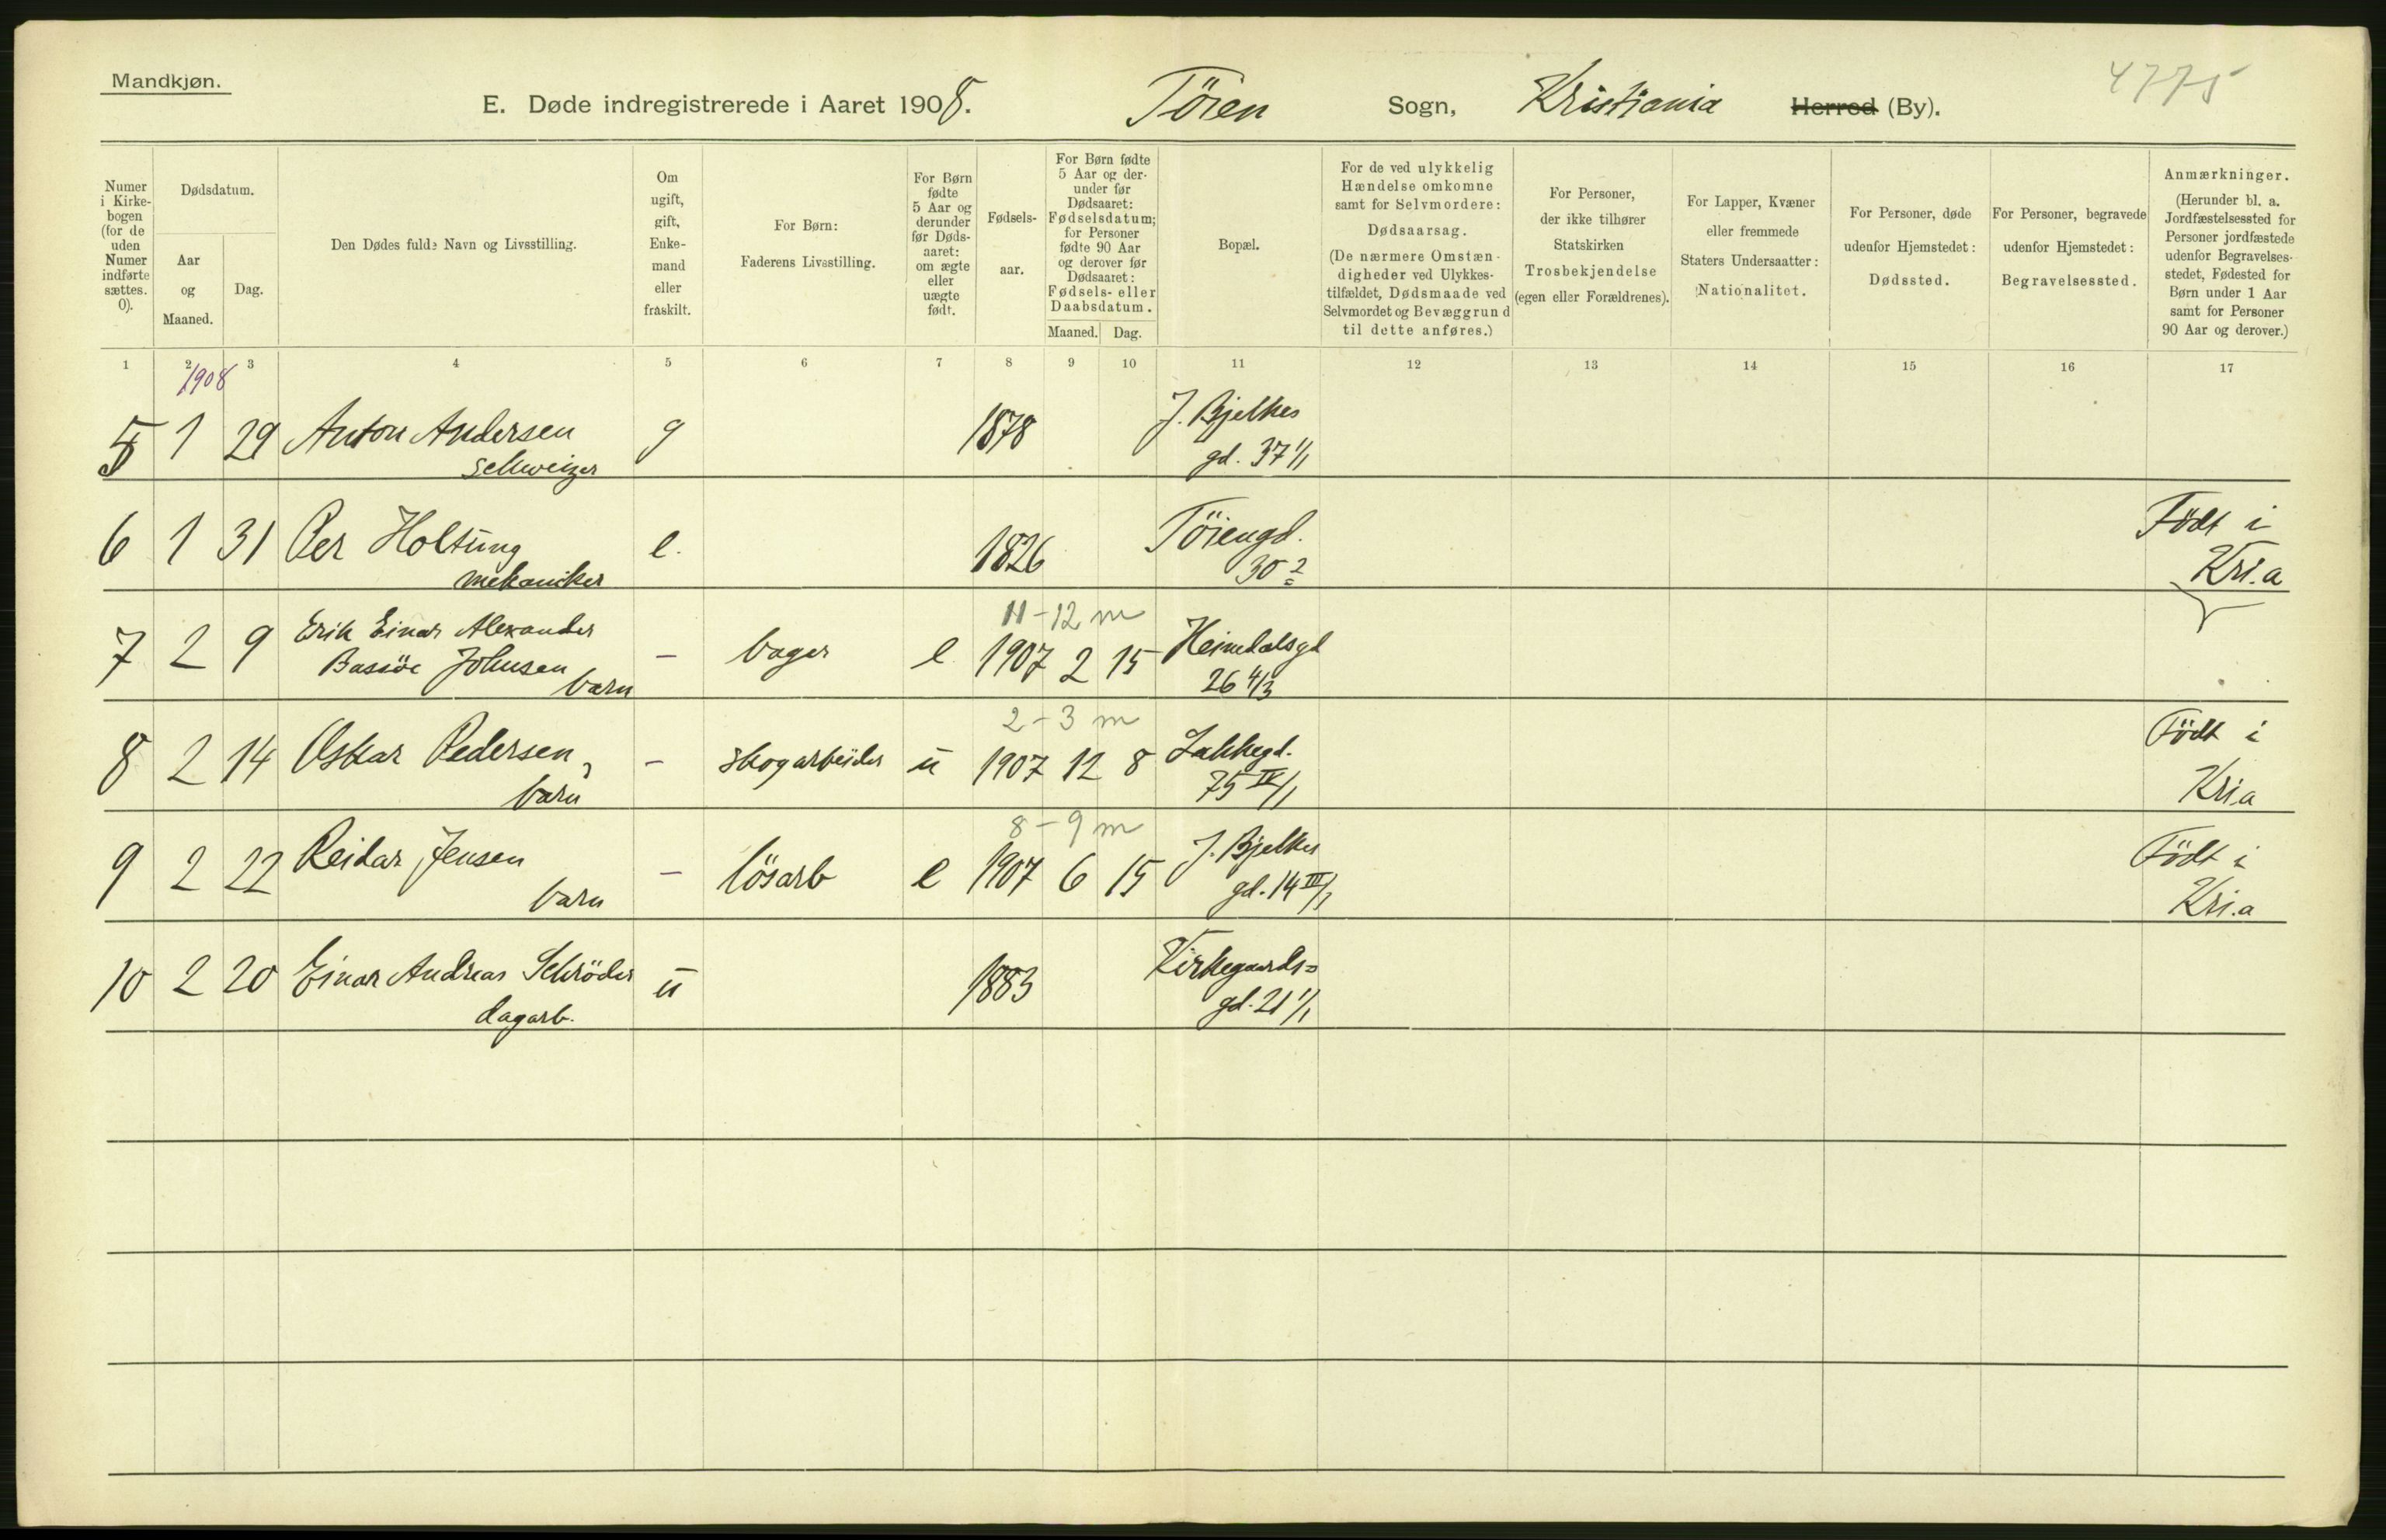 Mandkjøn.
E. Døde indregistrerede i Aaret 1908. Töien Sogn, Kristiania Herred (By). 4775
Numer i Kirkebogen (for de uden Numer indførte sættes. 0).
Dødsdatum.
Aar og Maaned.
Dag.
Den Dødes fulde Navn og Livsstilling.
Om ugift, gift, Enkemand eller fraskilt.
For Børn:
Faderens Livsstilling.
For Børn fødte 5 Aar og derunder før Dødsaaret: om ægte eller uægte født.
Fødselsaar.
For Børn fødte 5 Aar og derunder før Dødsaaret: Fødselsdatum; for Personer fødte 90 Aar og derover før Dødsaaret: Fødsels- eller Daabsdatum.
Maaned. Dag.
Bopæl.
For de ved ulykkelig Hændelse omkomne samt for Selvmordere:
Dødsaarsag.
(De nærmere Omstændigheder ved Ulykkestilfældet, Dødsmaade ved Selvmordet og Bevæggrund til dette anføres.)
For Personer, der ikke tilhører Statskirken
Trosbekjendelse
(egen eller Forældrenes).
For Lapper, Kvæner eller fremmede Staters Undersaatter:
Nationalitet.
For Personer, døde udenfor Hjemstedet:
Dødssted.
For Personer, begravede udenfor Hjemstedet:
Begravelsessted.
Anmærkninger.
(Herunder bl. a. Jordfæstelsessted for Personer jordfæstede udenfor Begravelsesstedet, Fødested for Børn under 1 Aar samt for Personer 90 Aar og derover.)
1 2 3 4 5 6 7 8 9 10 11 12 13 14 15 16 17
1908
5 1 29 Anton Andersen g 1878 J. Bjelkes
schweizer gd. 37 1/1
6 1 31 Per Holtung e. 1826 Töiengd. Födt i
mekaniker 30 2 Kri.a
11-12 m
7 2 9 Erik Einar Alexander
Bassöe Johnsen - bager e 1907 2 15 Heimdalsgd
barn 26 4/3
2-3 m
8 2 14 Oskar Pedersen, - skogarbeider u 1907 12 8 Lakkegd. Födt i
barn 75 IV/1 Kri.a
8-9 m
9 2 22 Reidar Jensen - lösarb e 1907 6 15 J. Bjelkes Födt i
barn gd. 14 III/1 Kri.a
10 2 20 Einar Andreas Schröder u 1883 Kirkegaards=
dagarb. gd. 21 1/1